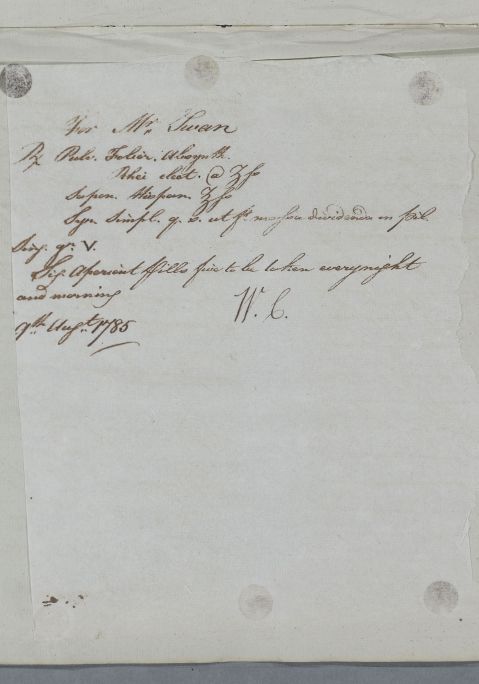 For Mr. Swan
℞ Pulv. Folior. Absynth.
Rhei elect. @ ʒfs
Sapon. Hispan. ʒfs
Syr. Simpl. q. s. ut ft. massa dividenda in pil.
Sing. gr. V.
Sig. Aperient Pills five to be taken every night
and morning
W. C.
9th. Augt. 1785